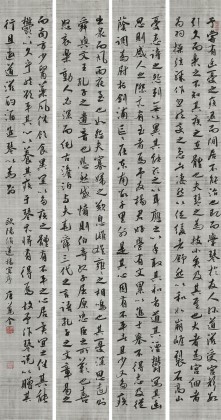 予嘗有幽憂之疾退而閒居不能治也既而學琴於友人孫道滋受宮聲數
引久而樂之不知其疾之在體也夫琴之為技小矣及其至也大者為宮細者
為羽操絃驟作忽然變之急者悽然以促緩者舒然以和如崩崖裂石高山
憂患詩之怨刺無以異其能聽之以耳應之以手取其和者道其湮鬱寫其幽
思則感人之際亦有至者焉予友楊君好學有文累以進士舉不得志及從
蔭調為尉於劍浦區區在東南數千里外是其心固有不平者且少又多疾
出泉而風雨夜至也如怨夫寡婦之歎息雌雄雍雍之相鳴也其憂深思遠則
舜與文王孔子之遺音也悲愁感憤則伯奇孤子屈原忠臣之所歎也喜
怒哀樂動人必深而純古淡泊與夫堯舜三代之言語孔子之文章易之
而南方少醫藥風俗飲食異宜以多疾之體有不平之心居異宜之俗其能
鬱鬱以久乎然欲平其心以養其疾於琴亦將有得焉故予作琴說以贈其
行且邀道滋酌酒進琴以為別
歐陽修送楊寘序 唐駝